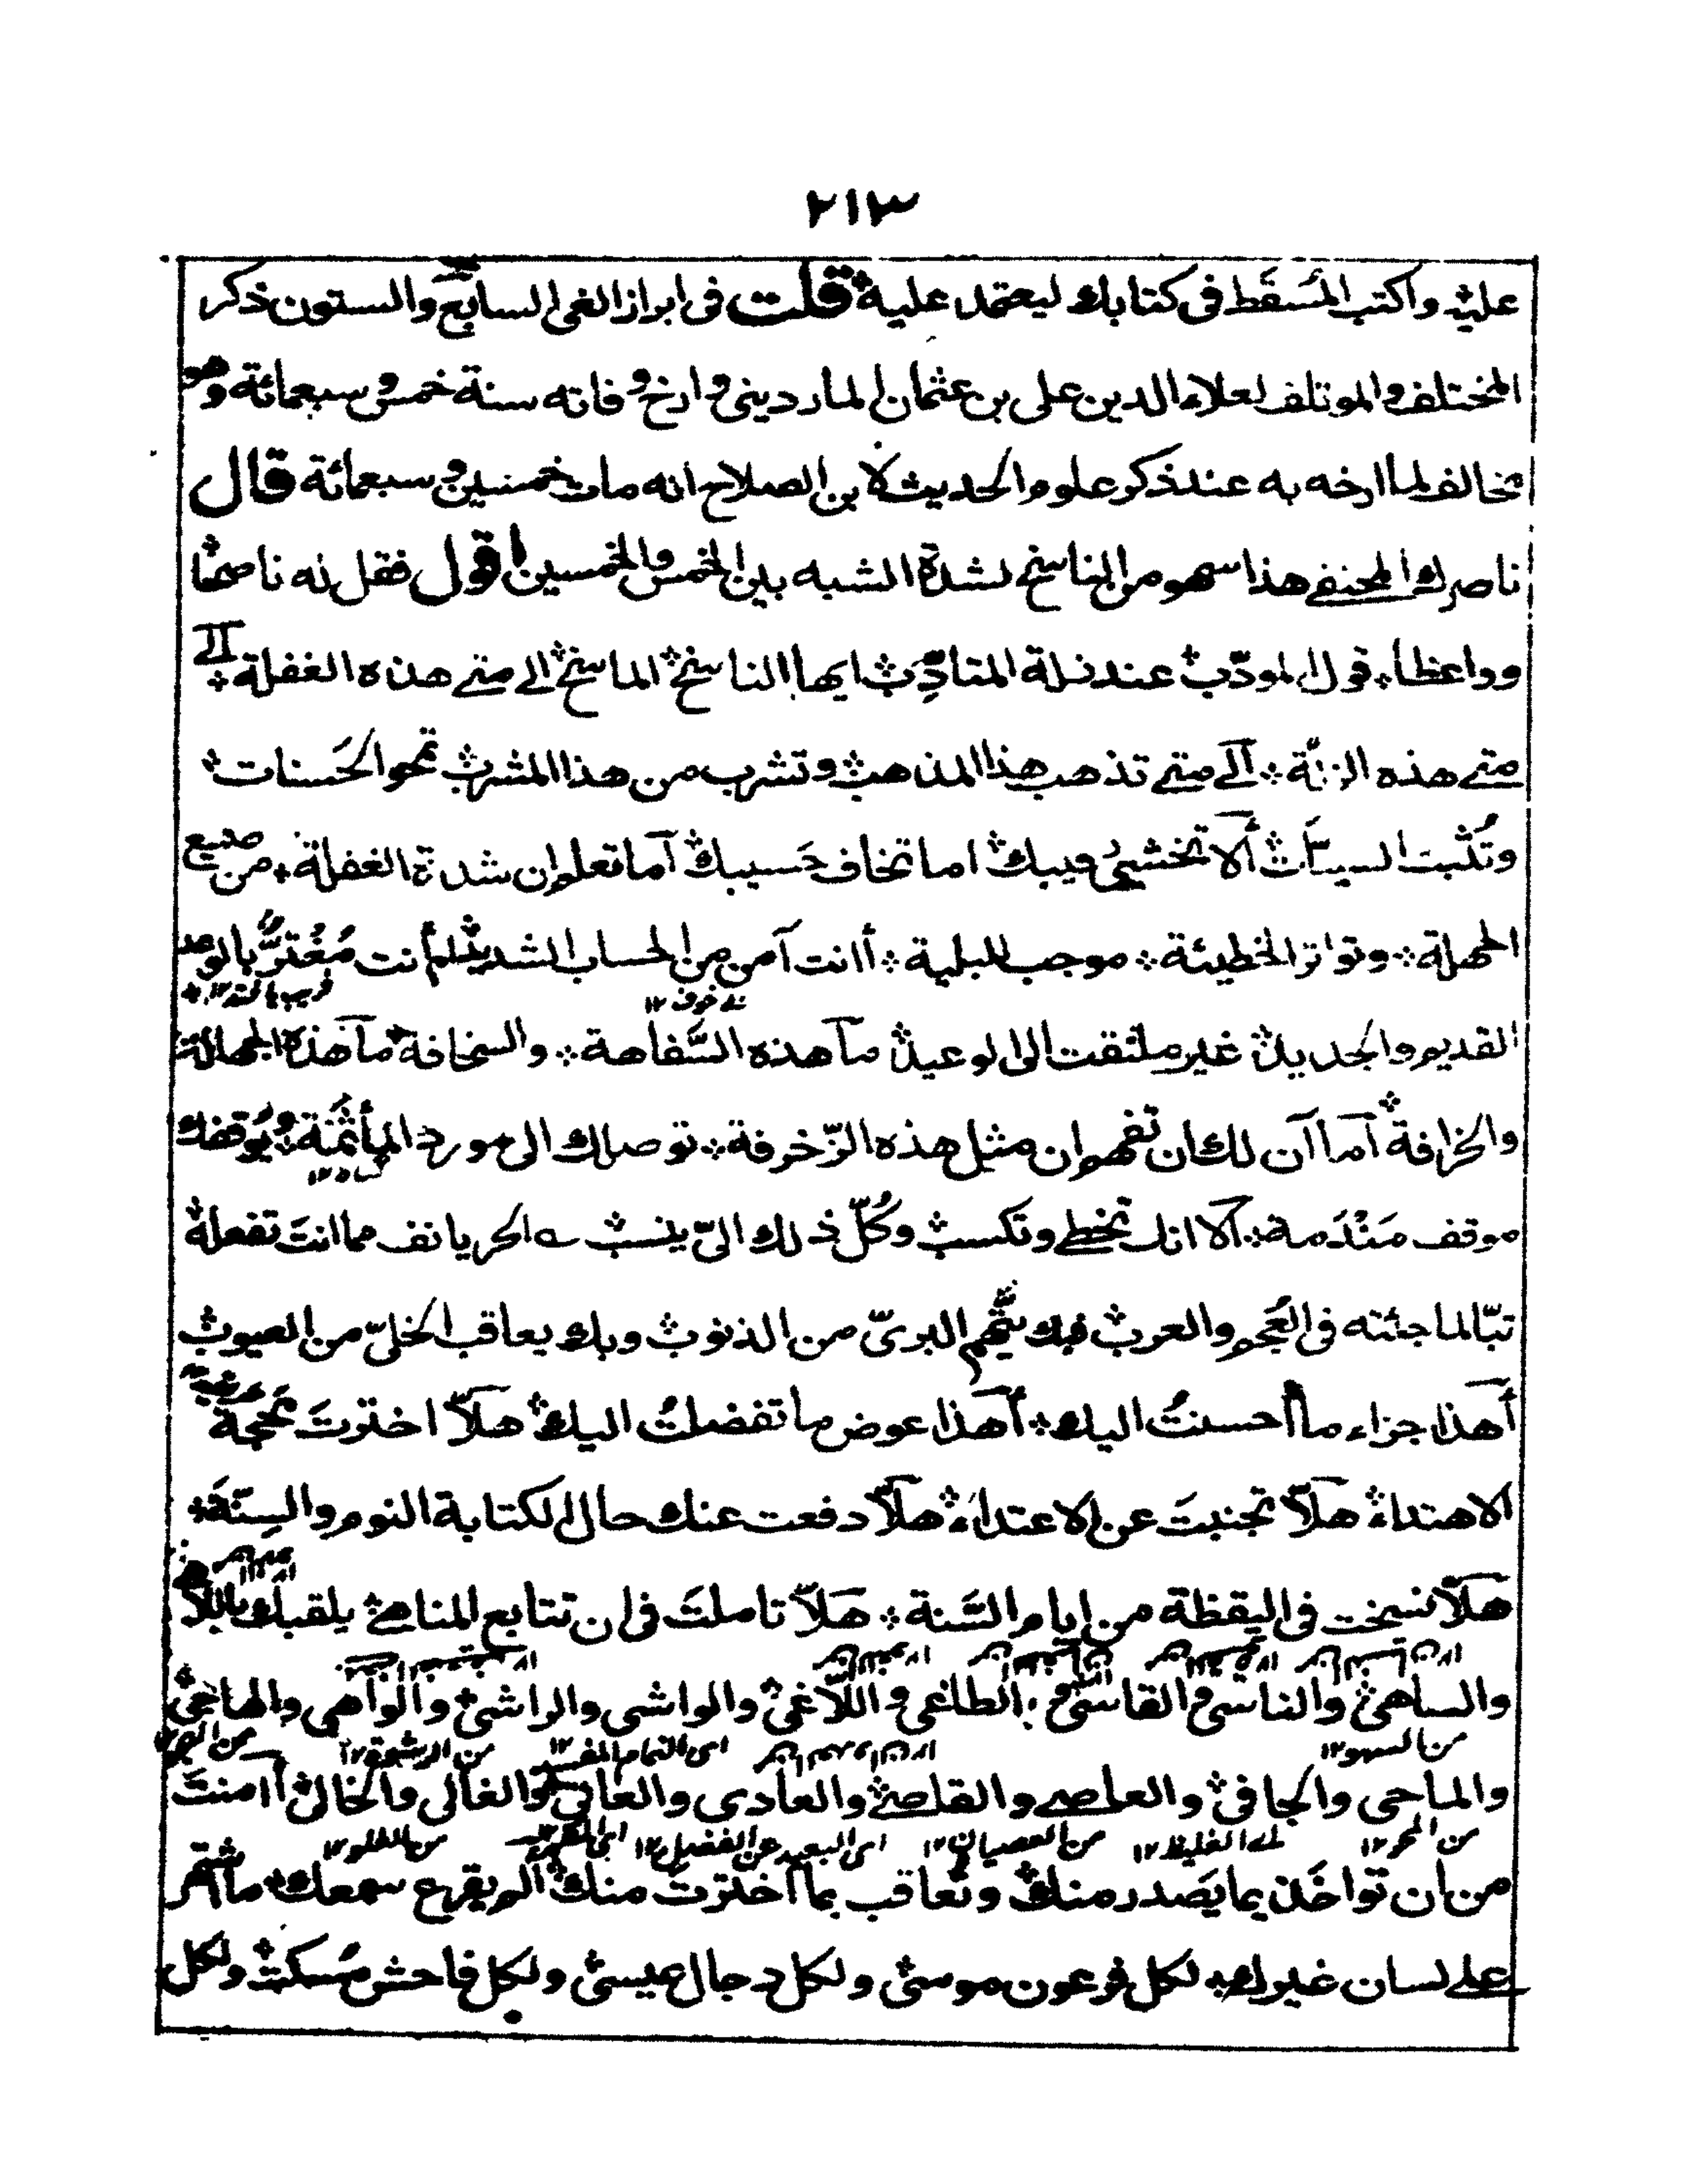 ٢١٣
عليه واكتب المسقط فى كتابك ليعتمد عليه قلت فى ابراز الغى السابع والستون ذكر
المختلف والموتلف لعلاء الدين على بن عثمان الماردينى وارخ وفاته سنة خمس وسبعمائة وهو
مخالف لما ارخه به عند ذكر علوم الحديث لابن الصلاح انه مات خمسين وسبعمائة قال
ناصرك المختفے هذا سهو من الناسخ لشدة الشبه بين الخمس والخمسين اقول فقل له ناصحًا
وواعظا قول المودّب عند زلة المتادِّب ايها الناسخ الماسخ الے متے هذه الغفلة الے
متے هذه الزلّة آلے متے تذهب هذا المذهب وتشرب من هذا المشرب تمحو الحَسنات
وتُثبت السيئات ألا تخشى رقيبك اما تخاف حَسيبك آما تعلم ان شدة الغفلة من صنيع
الجهلة وتواتر الخطيئة موجب للبلية أانت آمن من الحساب الشديد ام أنت مُغترٌّ بالوعد
فى خوف ١٢
القديم والجديد غير ملتفت الى الوعيد مآ هذه السَّفاهة والسخافة مآ هذه الجهالة
والخرافة آما آن لك ان تفهم ان مثل هذه الزّخرفة توصلك الى مورد المأثمَة ويُوقفك
موقف مَنْدَمة آلا انك تخطے وتكسب وكُلّ ذلك الىّ ينسب ے الحر يانف مما انت تفعله
تبّا لما جئته فى العَجم والعرب فبك يتّهم البرىّ من الذنوب وبك يعاقب الخلىّ من العيوب
أهذا جزاء ما أحسنتُ اليك أهذا عوض ما تفضلتُ اليك هلآ اخترتَ محجة
الاهتداء هلآّ تجنبتَ عن الاعتداء هلآّ دفعت عنك حال الكتابة النوم والسِنَة
هلآّ نسخت فى اليقظة من ايام السَّنة هَلآّ تاملتَ فى ان تتابع المناهے يلقبك باللاهى
والساهى والناسى والقاسى والطاغى واللّاغى والواشى والراشى والواهى والهاجى
من السهو ١٢ اى النمام المفسد ١٢ من الرشوة ١٢ من الهجو ١٢
والماحى والجافى والعاصے والقاصے والعادى والعاتى والغالى والخالى أامنتَ
من المحو ١٢ اے الغليظ ١٢ من العصيان ١٢ اى البعيد عن الفضل ١٢ اى المتكبر ١٢ من الغلو ١٢
من ان تواخَذ بما يَصدر منك وتُعاقب بما أخترتَ منك الم يقرع سمعك ما اشتهر
علے لسان غيرك لكل فرعون موسى ولكل دجال عيسى ولكل فاحش مُسكت ولكل